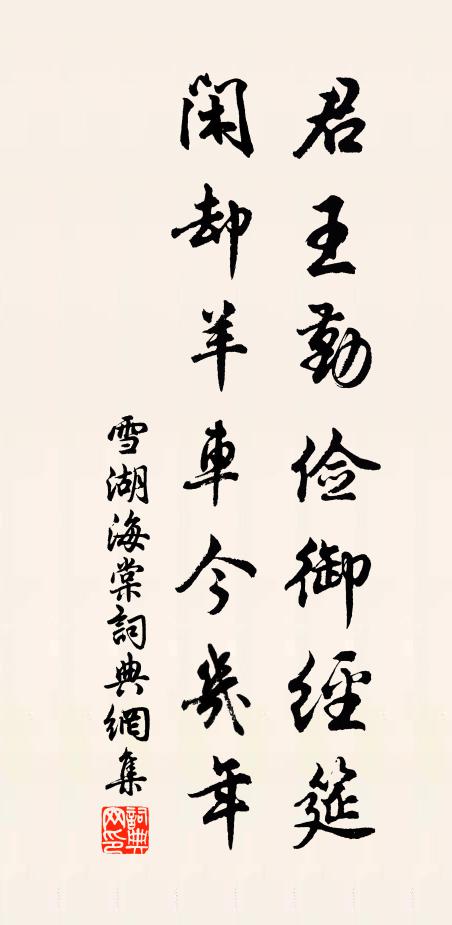 君王勤俭御經筵
闲却羊車今幾年
雪湖海棠詞典網集
詞典网印